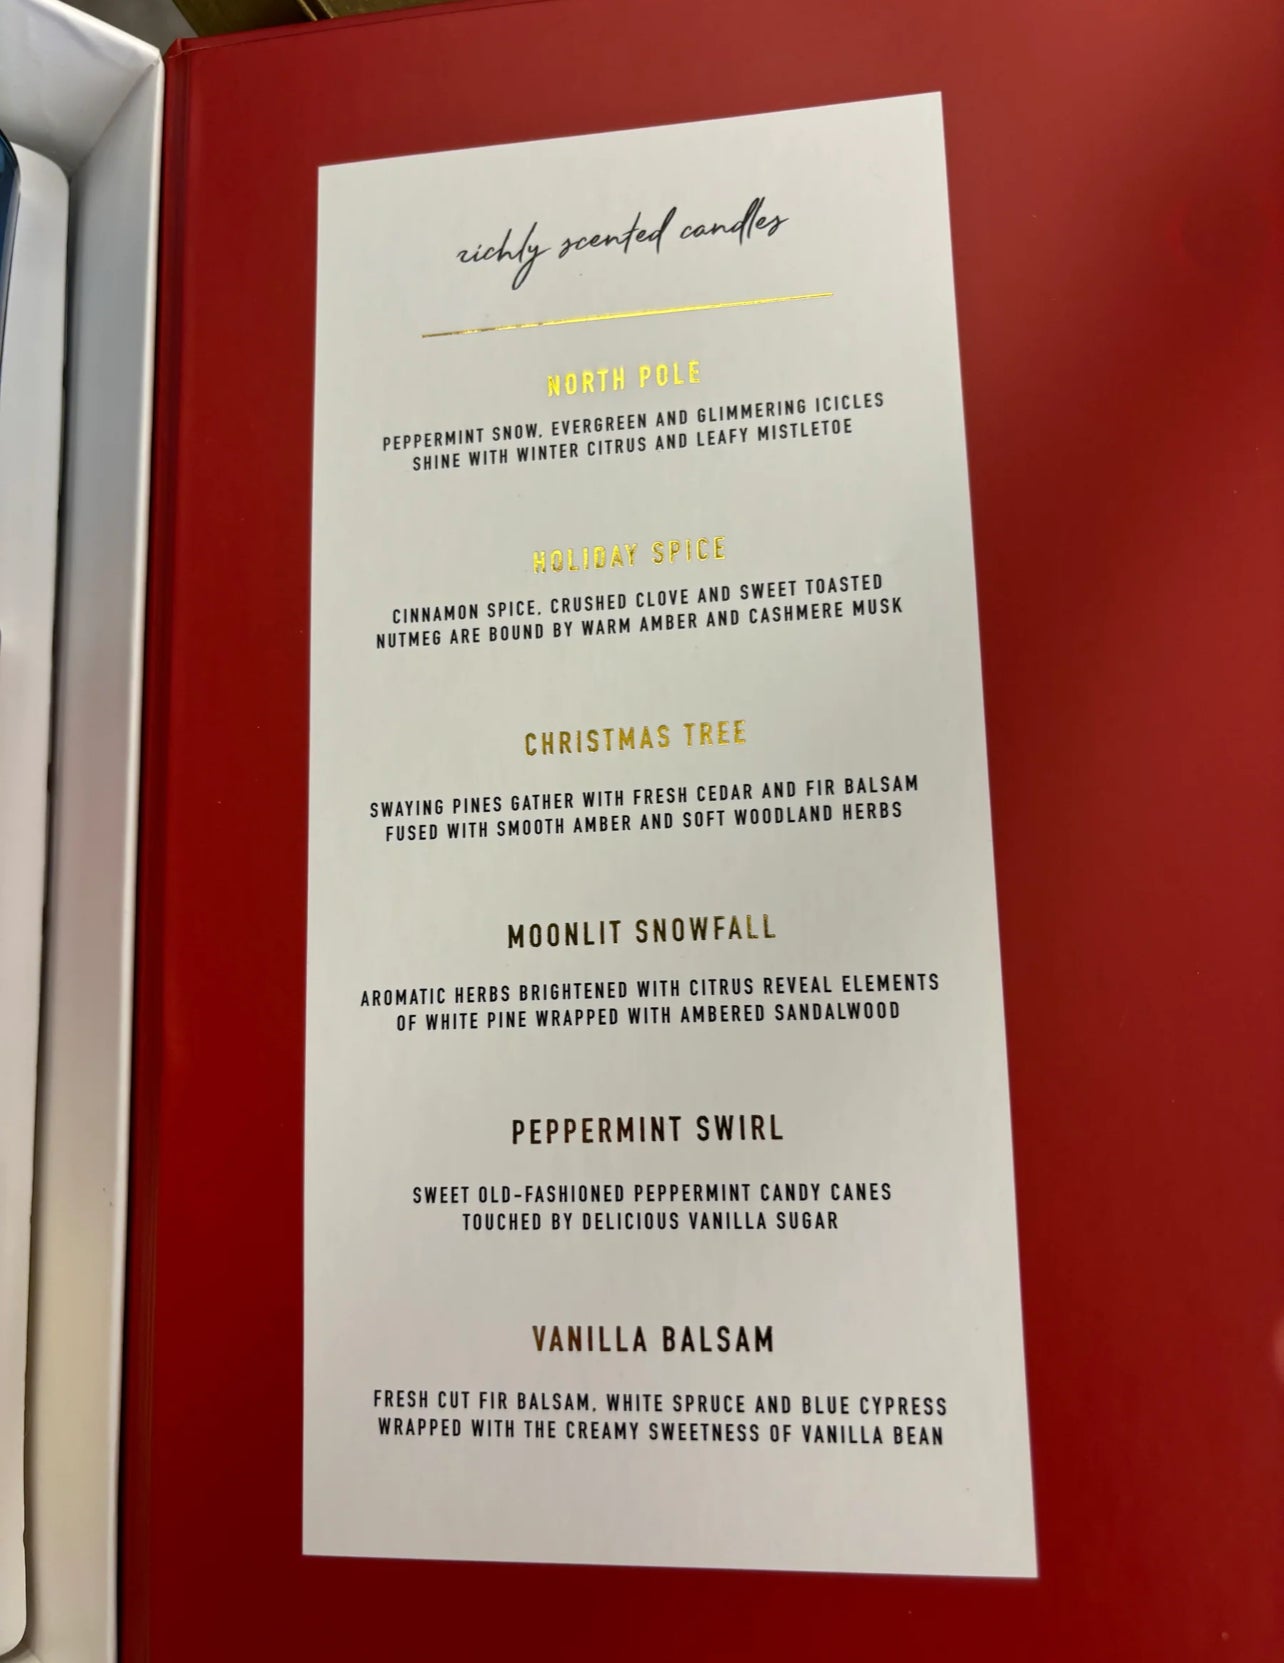 richly scented candles
NORTH POLE
PEPPERMINT SNOW, EVERGREEN AND GLIMMERING ICICLES
SHINE WITH WINTER CITRUS AND LEAFY MISTLETOE
HOLIDAY SPICE
CINNAMON SPICE, CRUSHED CLOVE AND SWEET TOASTED
NUTMEG ARE BOUND BY WARM AMBER AND CASHMERE MUSK
CHRISTMAS TREE
SWAYING PINES GATHER WITH FRESH CEDAR AND FIR BALSAM
FUSED WITH SMOOTH AMBER AND SOFT WOODLAND HERBS
MOONLIT SNOWFALL
AROMATIC HERBS BRIGHTENED WITH CITRUS REVEAL ELEMENTS
OF WHITE PINE WRAPPED WITH AMBERED SANDALWOOD
PEPPERMINT SWIRL
SWEET OLD-FASHIONED PEPPERMINT CANDY CANES
TOUCHED BY DELICIOUS VANILLA SUGAR
VANILLA BALSAM
FRESH CUT FIR BALSAM, WHITE SPRUCE AND BLUE CYPRESS
WRAPPED WITH THE CREAMY SWEETNESS OF VANILLA BEAN